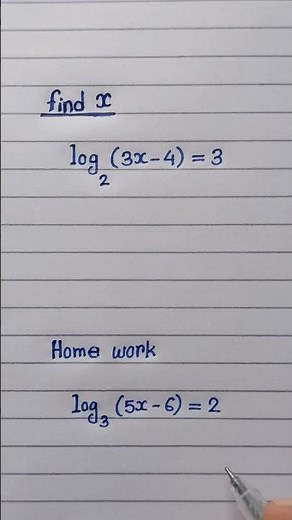 find x
log₂ (3x-4) = 3
Home work
log₃ (5x-6) = 2